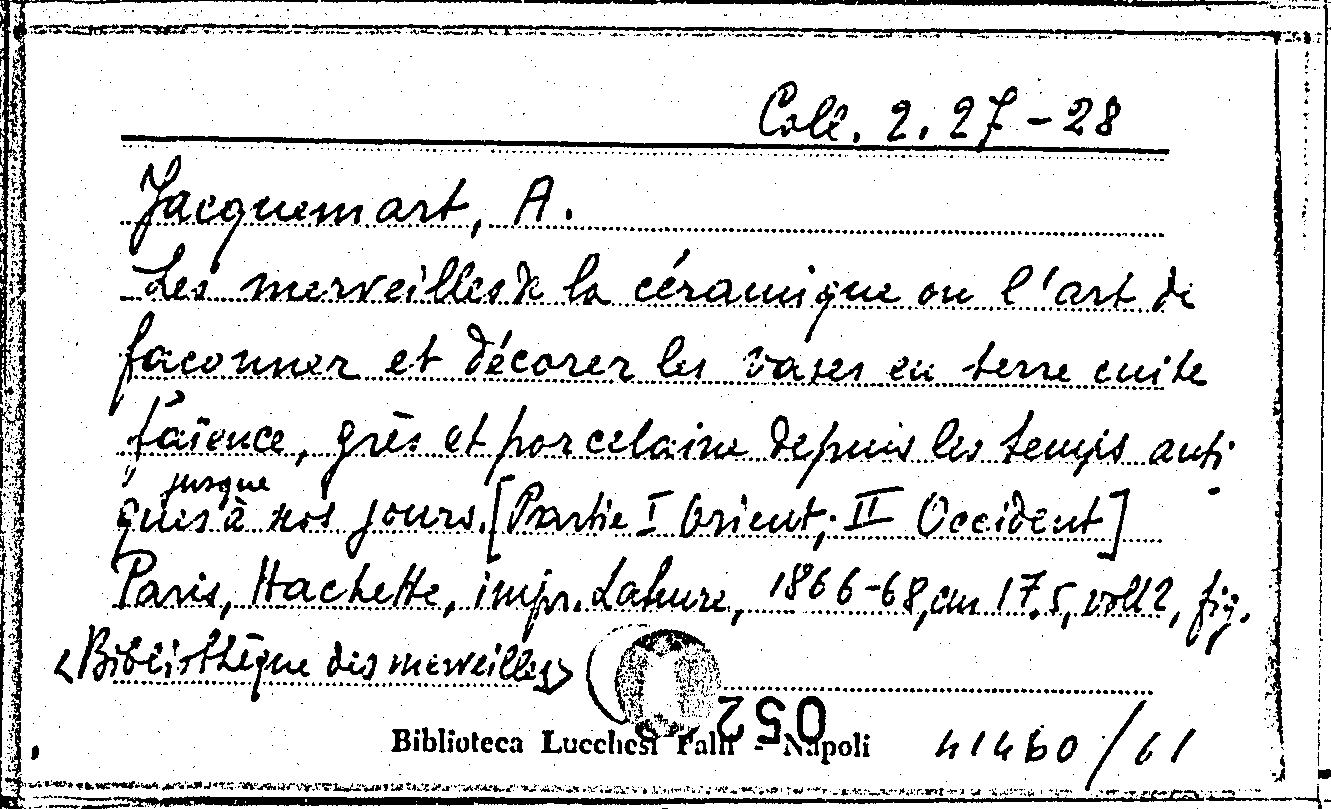 Coll. 2. 27-28
Jacquemart, A.
Les merveilles de la céramique ou l'art de
façonner et décorer les vases en terre cuite
faïence, grès et porcelaine depuis les temps anti-
ques jusque à nos jours. [Partie I Orient; II Occident]
Paris, Hachette, impr. Lahure, 1866-68, cm 17.5, voll 2, fig.
<Bibliothèque des merveilles>
052
Biblioteca Lucchesi Palli - Napoli 41460/61